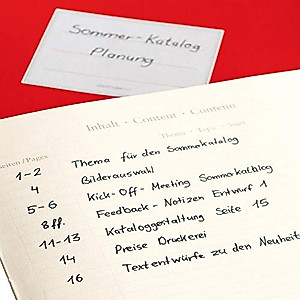 Sommer-Katalog
Planung
Inhalt · Content · Contenu
Thema · Topic · Sujet
Seiten/Pages
1-2 Thema für den Sommerkatalog
4 Bilderauswahl
5-6 Kick-Off-Meeting Sommerkatalog
8ff. Feedback-Notizen Entwurf 1
11-13 Kataloggestaltung Seite 15
14 Preise Druckerei
16 Textentwürfe zu den Neuheit